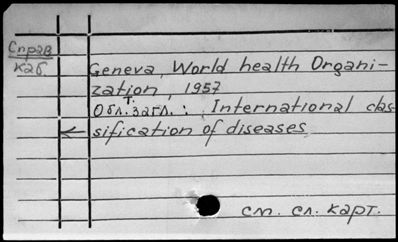 Справ
каб
Geneva, World health Organi-
zation, 1957
Обл. т. загл.: International clas
sification of diseases
см. сл. карт.